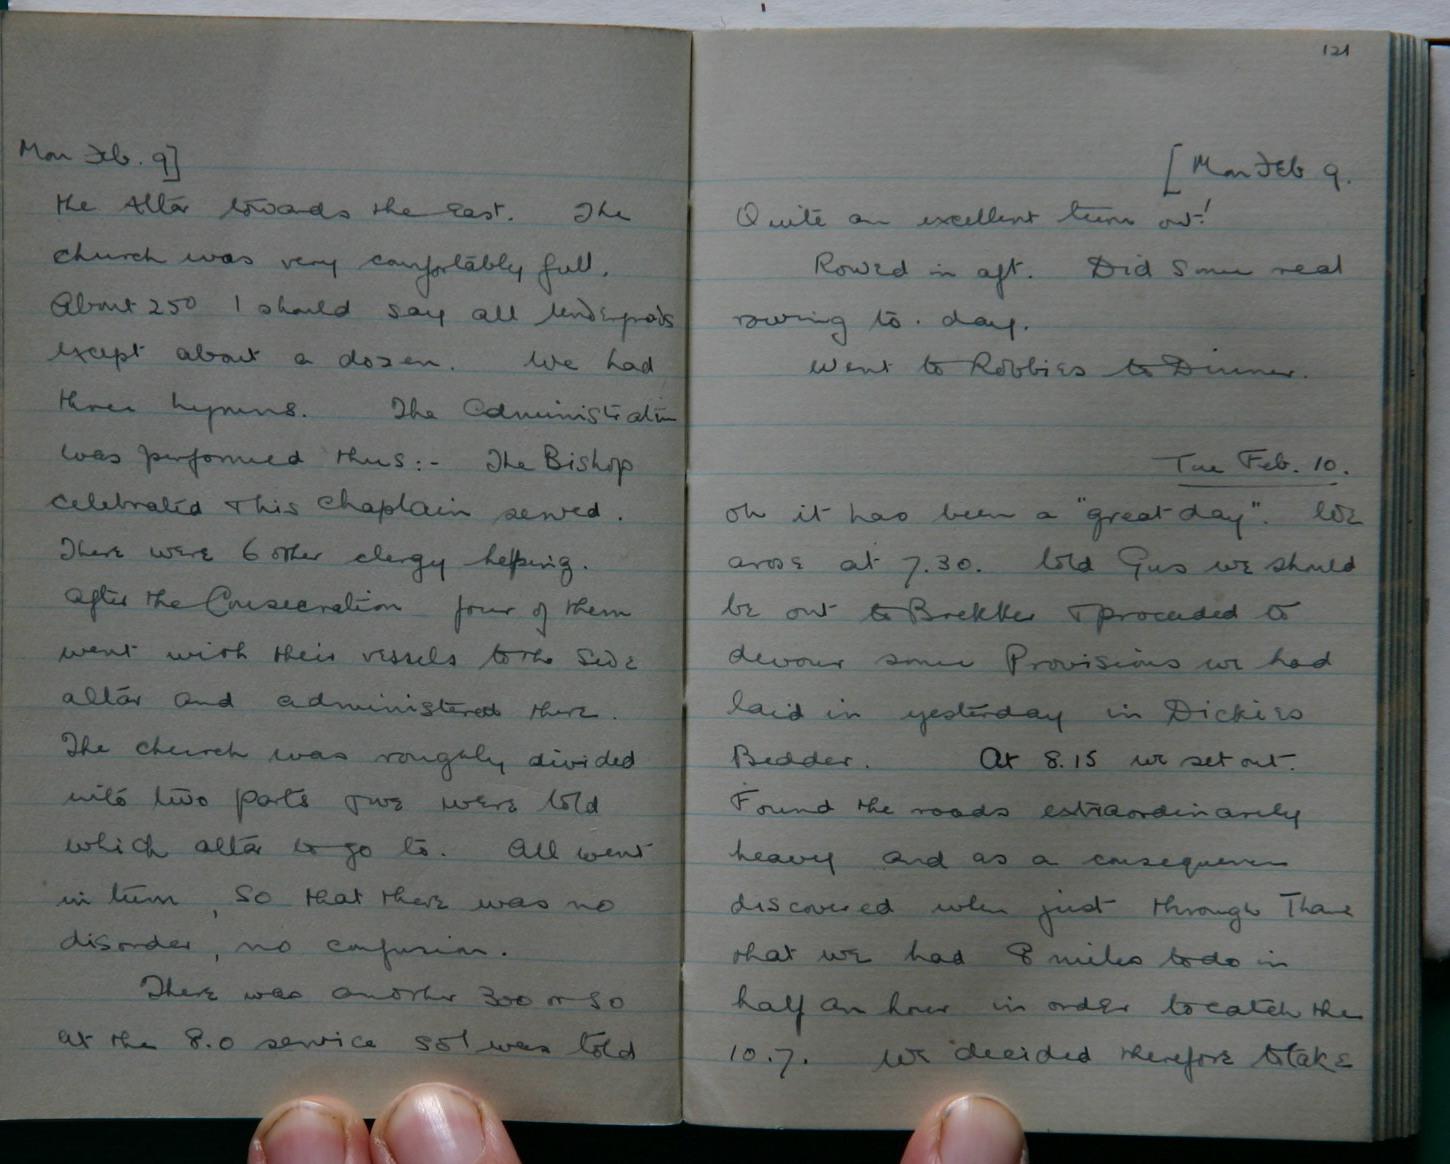 Mon Feb. 9]
the Altar towards the East. The
church was very comfortably full.
About 250 I should say all undergrads
except about a dozen. We had
three hymns. The Administration
was performed thus:- The Bishop
celebrated & his chaplain served.
There were 6 other clergy helping.
After the Consecration four of them
went with their vessels to the side
altar and administered there.
The church was roughly divided
into two parts & we were told
which altar to go to. All went
in turn, so that there was no
disorder, no confusion.
There was another 300 or so
at the 8.0 service so I was told
121
[Mon Feb 9.
Quite an excellent turn out!
Rowed in aft. Did some real
rowing to.day.
Went to Robbies to Dinner.
Tue Feb. 10.
Oh it has been a "great day". We
arose at 7.30. told Gus we should
be out to Brekker & proceeded to
devour some Provisions we had
laid in yesterday in Dickies
Bedder. At 8.15 we set out.
Found the roads extraordinarily
heavy and as a consequence
discovered when just through Thame
that we had 8 miles to do in
half an hour in order to catch the
10.7. We decided therefore to take